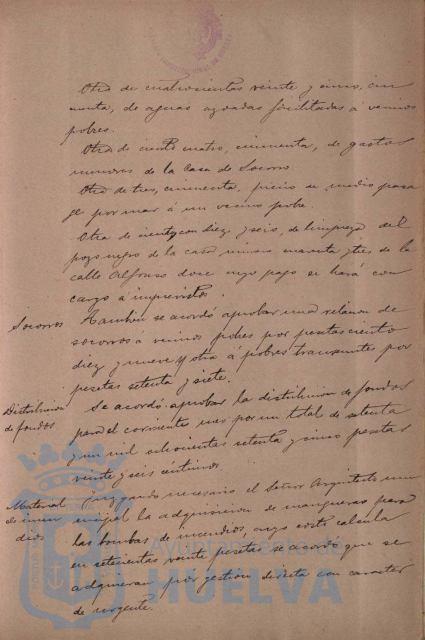 Otra de cuatrocientas veinte y cinco, cin
cuenta, de aguas azoadas facilitadas á vecinos
pobres.
Otra de ciento cuatro, cincuenta, de gastos
menores de la Casa de Socorro
Otra de tres, cincuenta, precio de medio pasa
je por mar á un vecino pobre.
Otra de ciento diez y seis, de limpieza del
pozo negro de la casa número cuarenta y tres de la
calle Alfonso doce cuyo pago se hará con
cargo á imprevistos.
Socorros También se acordó aprobar una relación de
socorros a vecinos pobres por pesetas ciento
diez y nueve, y otra á pobres transeuntes por
pesetas setenta y siete.
Distribución de fondos Se acordó aprobar la distribución de fondos
para el corriente mes por un total de setenta
y un mil ochocientas setenta y cinco pesetas
veinte y seis centimos
Material de incendios Juzgando necesario el Señor Arquitecto mu
nicipal la adquisición de mangueras para
las bombas de incendios, cuyo coste calcula
en setecientas veinte pesetas se acordó que se
adquieran por gestión directa con carácter
de urgente.
Ayuntamiento de
HUELVA